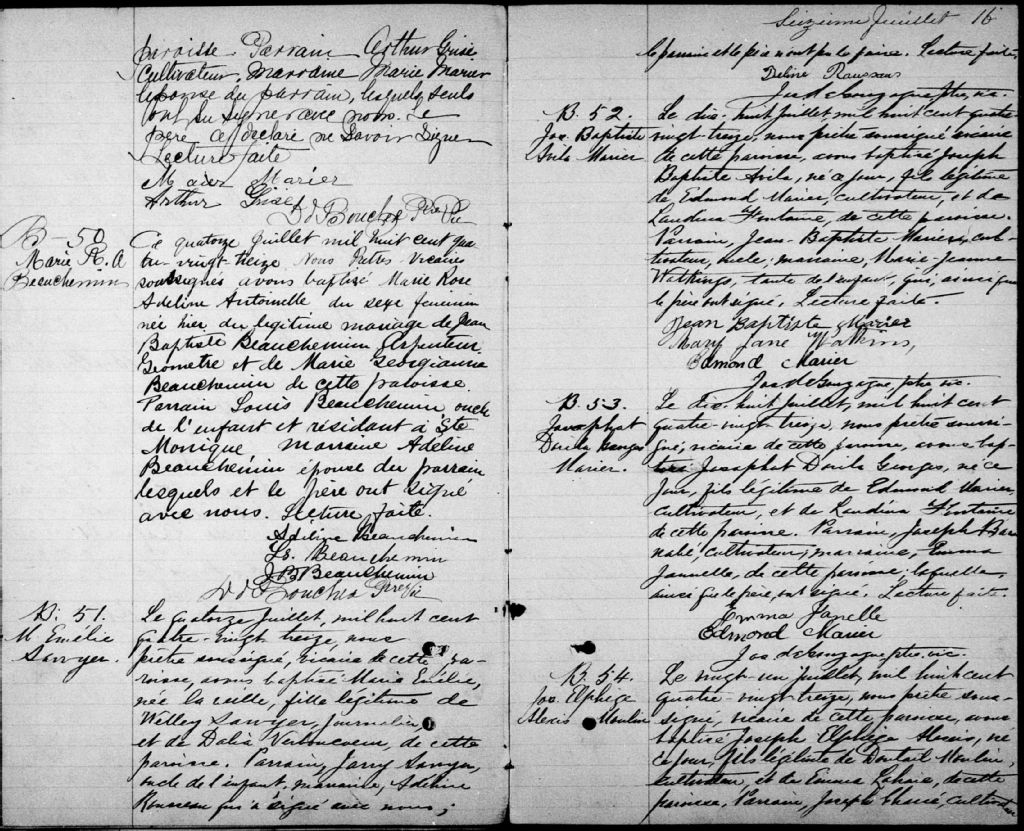 paroisse. Parrain Arthur Grisé
Cultivateur, Marraine Marie Marier
épouse du parrain, lesquels seuls
ont su signer avec nous. Le
père a déclaré ne savoir signer
Lecture faite
Marier
Arthur Grisé
Ptre Vic
B — 50
Marie R. A
Beauchemin
Ce quatorze Juillet mil huit cent qua
tre-vingt treize Nous Prêtre Vicaire
soussignés avons baptisé Marie Rose
Adeline Antoinette du sexe feminin
née hier du legitime mariage de Jean
Baptiste Beauchemin Arpenteur
Géometre et de Marie Georgianna
Beauchemin de cette paroisse.
Parrain Louis Beauchemin, oncle
de l'enfant et résidant à Ste
Monique Marraine Adeline
Beauchemin épouse du parrain
lesquels et le père ont signé
avec nous. Lecture faite.
Adéline Beauchemin
Ls. Beauchemin
J B Beauchemin
Ptre Vic
B. 51.
M Emélie
Sawyer.
Le quatorze Juillet, mil huit cent
quatre-vingt treize, nous
prêtre soussigné, vicaire de cette pa-
roisse, avons baptisé Marie Emélie,
née la veille, fille légitime de
Willey Sawyer, journalier
et de Dalia, de cette
paroisse. Parrain, Sawyer,
oncle de l'enfant, marraine, Adeline
Rousseau qui a signé avec nous;
Seizième Juillet 16
le parrain et le père n'ont pu le faire. Lecture faite.
Deline Rousseau
Jos de Gonzague, ptre, vic.
B. 52.
Jos. Baptiste
Avila Marier
Le dix-huit Juillet mil huit cent quatre
vingt-treize, nous prêtre soussigné vicaire
de cette paroisse, avons baptisé Joseph
Baptiste Avila, né ce jour, fils légitime
de Edmond Marier, cultivateur, et de
Laudina Fontaine de cette paroisse.
Parrain, Jean-Baptiste Marier, cul-
tivateur, marraine, Marie-Jeanne
Watkings, tante de l'enfant, qui, ainsi que
le père ont signé. Lecture faite.
Jean Baptiste Marier
Mary Jane Watkins,
Edmond Marier
Jos de Gonzague, ptre vic.
B. 53.
Josaphat
Dorila Georges
Marier.
Le dix-huit Juillet, mil huit cent
quatre-vingt-treize, nous prêtre soussi-
gné, vicaire de cette paroisse, avons bap-
tisé Josaphat Dorila Georges, né ce
jour, fils légitime de Edmond Marier,
cultivateur, et de Laudina Fontaine
de cette paroisse. Parrain, Joseph Bar
nabé, cultivateur, marraine, Emma
Jannelle, de cette paroisse; laquelle,
ainsi que le père, ont signé. Lecture faite.
Emma Janelle
Edmond Marier
Jos de Gonzague ptre. vic.
B. 54.
Jos. Elphège
Alexis Moulin
Le vingt-un juillet, mil huit cent
quatre-vingt-treize, nous prêtre sous-
signé, vicaire de cette paroisse, avons
baptisé Joseph Elphège Alexis, né
ce jour, fils légitime de Moulin,
cultivateur, et de Emma Lahaie, de cette
paroisse, Parrain, Joseph, cultivateur